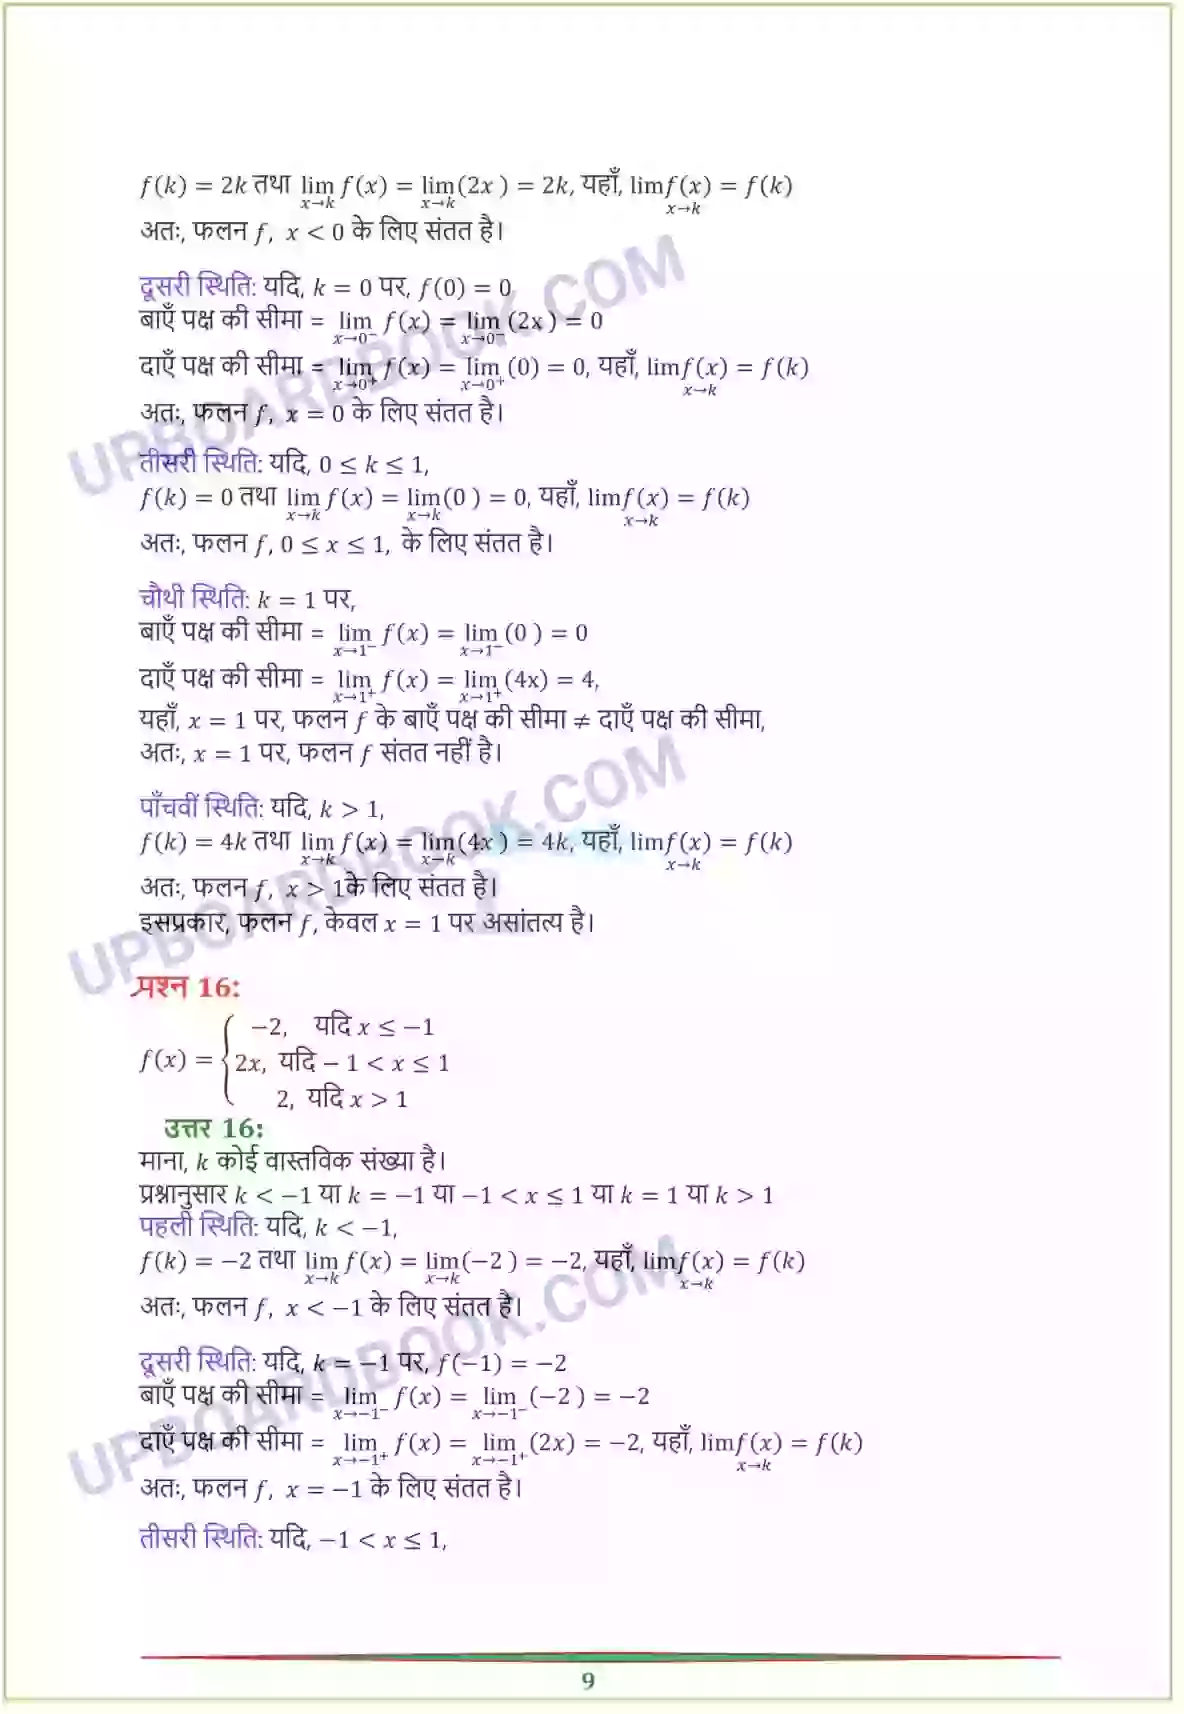 f(k) = 2k तथा lim x→k f(x) = lim x→k (2x ) = 2k, यहाँ, lim x→k f(x) = f(k)
अतः, फलन f, x < 0 के लिए संतत है।
दूसरी स्थिति: यदि, k = 0 पर, f(0) = 0
बाएँ पक्ष की सीमा = lim x→0⁻ f(x) = lim x→0⁻ (2x ) = 0
दाएँ पक्ष की सीमा = lim x→0⁺ f(x) = lim x→0⁺ (0) = 0, यहाँ, lim x→k f(x) = f(k)
अतः, फलन f, x = 0 के लिए संतत है।
तीसरी स्थिति: यदि, 0 ≤ k ≤ 1,
f(k) = 0 तथा lim x→k f(x) = lim x→k (0 ) = 0, यहाँ, lim x→k f(x) = f(k)
अतः, फलन f, 0 ≤ x ≤ 1, के लिए संतत है।
चौथी स्थिति: k = 1 पर,
बाएँ पक्ष की सीमा = lim x→1⁻ f(x) = lim x→1⁻ (0 ) = 0
दाएँ पक्ष की सीमा = lim x→1⁺ f(x) = lim x→1⁺ (4x) = 4,
यहाँ, x = 1 पर, फलन f के बाएँ पक्ष की सीमा ≠ दाएँ पक्ष की सीमा,
अतः, x = 1 पर, फलन f संतत नहीं है।
पाँचवीं स्थिति: यदि, k > 1,
f(k) = 4k तथा lim x→k f(x) = lim x→k (4x ) = 4k, यहाँ, lim x→k f(x) = f(k)
अतः, फलन f, x > 1के लिए संतत है।
इसप्रकार, फलन f, केवल x = 1 पर असांतत्य है।
प्रश्न 16:
f(x) = { −2, यदि x ≤ −1
2x, यदि − 1 < x ≤ 1
2, यदि x > 1
उत्तर 16:
माना, k कोई वास्तविक संख्या है।
प्रश्नानुसार k < −1 या k = −1 या −1 < x ≤ 1 या k = 1 या k > 1
पहली स्थिति: यदि, k < −1,
f(k) = −2 तथा lim x→k f(x) = lim x→k (−2 ) = −2, यहाँ, lim x→k f(x) = f(k)
अतः, फलन f, x < −1 के लिए संतत है।
दूसरी स्थिति: यदि, k = −1 पर, f(−1) = −2
बाएँ पक्ष की सीमा = lim x→−1⁻ f(x) = lim x→−1⁻ (−2 ) = −2
दाएँ पक्ष की सीमा = lim x→−1⁺ f(x) = lim x→−1⁺ (2x) = −2, यहाँ, lim x→k f(x) = f(k)
अतः, फलन f, x = −1 के लिए संतत है।
तीसरी स्थिति: यदि, −1 < x ≤ 1,
9
UPBOARDBOOK.COM
UPBOARDBOOK.COM
UPBOARDBOOK.COM